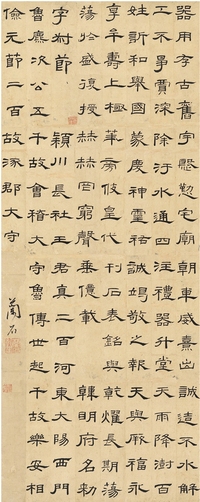 器用存古舊宇慇懃宅廟朝車威熹出誠造不水解
工不爭賈深除汙水通四注禮器升堂天雨降澍百
姓訢和舉國蒙慶神靈祐誠竭敬之報天與厥福永
享牟壽上極華旁伎皇代刊石表銘與乾燿長期蕩
蕩於盛復授赫赫罔窮聲垂億載韓明府名勑
字叔節潁川長社王君真二百河東大陽西門
魯麃次公五千故會稽大守魯傅世起千故樂安相
儉元節二百故涿郡大守
蘭石